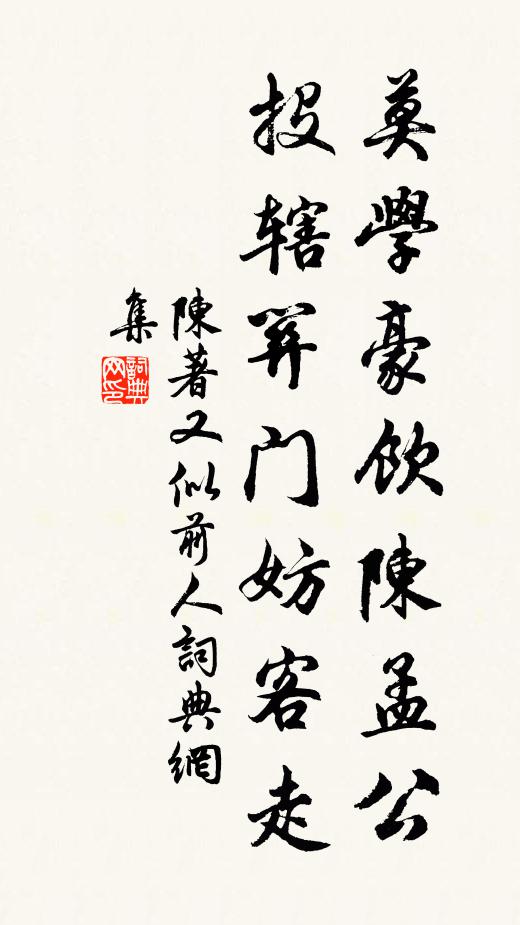 莫學豪飲陳孟公
投辖门妨客走
陳著又似前人詞典網
集
詞典
网印